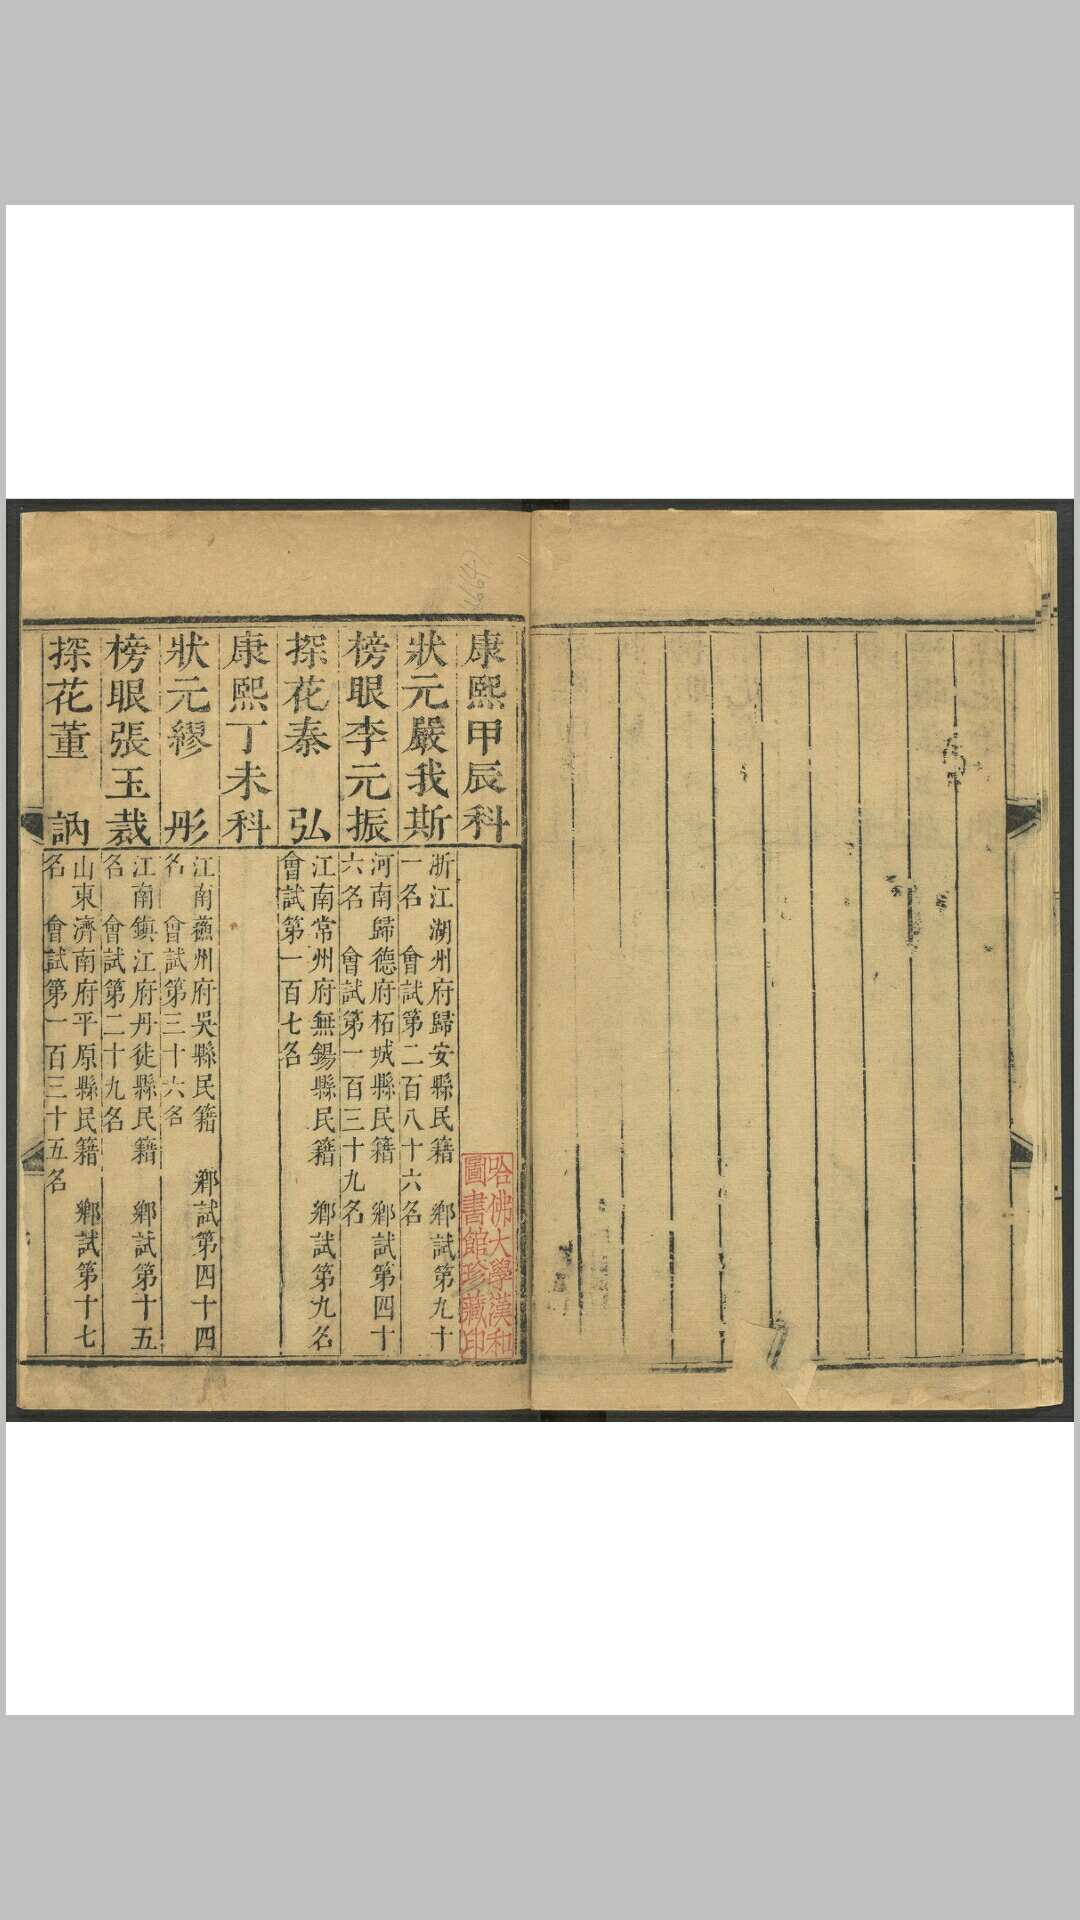 康熙甲辰科
狀元嚴我斯
浙江湖州府歸安縣民籍 鄉試第九十
一名 會試第二百八十六名
榜眼李元振
河南歸德府柘城縣民籍 鄉試第四十
六名 會試第一百三十九名
探花秦 弘
江南常州府無錫縣民籍 鄉試第九名
會試第一百七名
康熙丁未科
狀元繆 彤
江南蘓州府吳縣民籍 鄉試第四十四
名 會試第三十六名
榜眼張玉裁
江南鎮江府丹徒縣民籍 鄉試第十五
名 會試第二十九名
探花董 訥
山東濟南府平原縣民籍 鄉試第十七
名 會試第一百三十五名
哈佛大學漢和
圖書館珍藏印